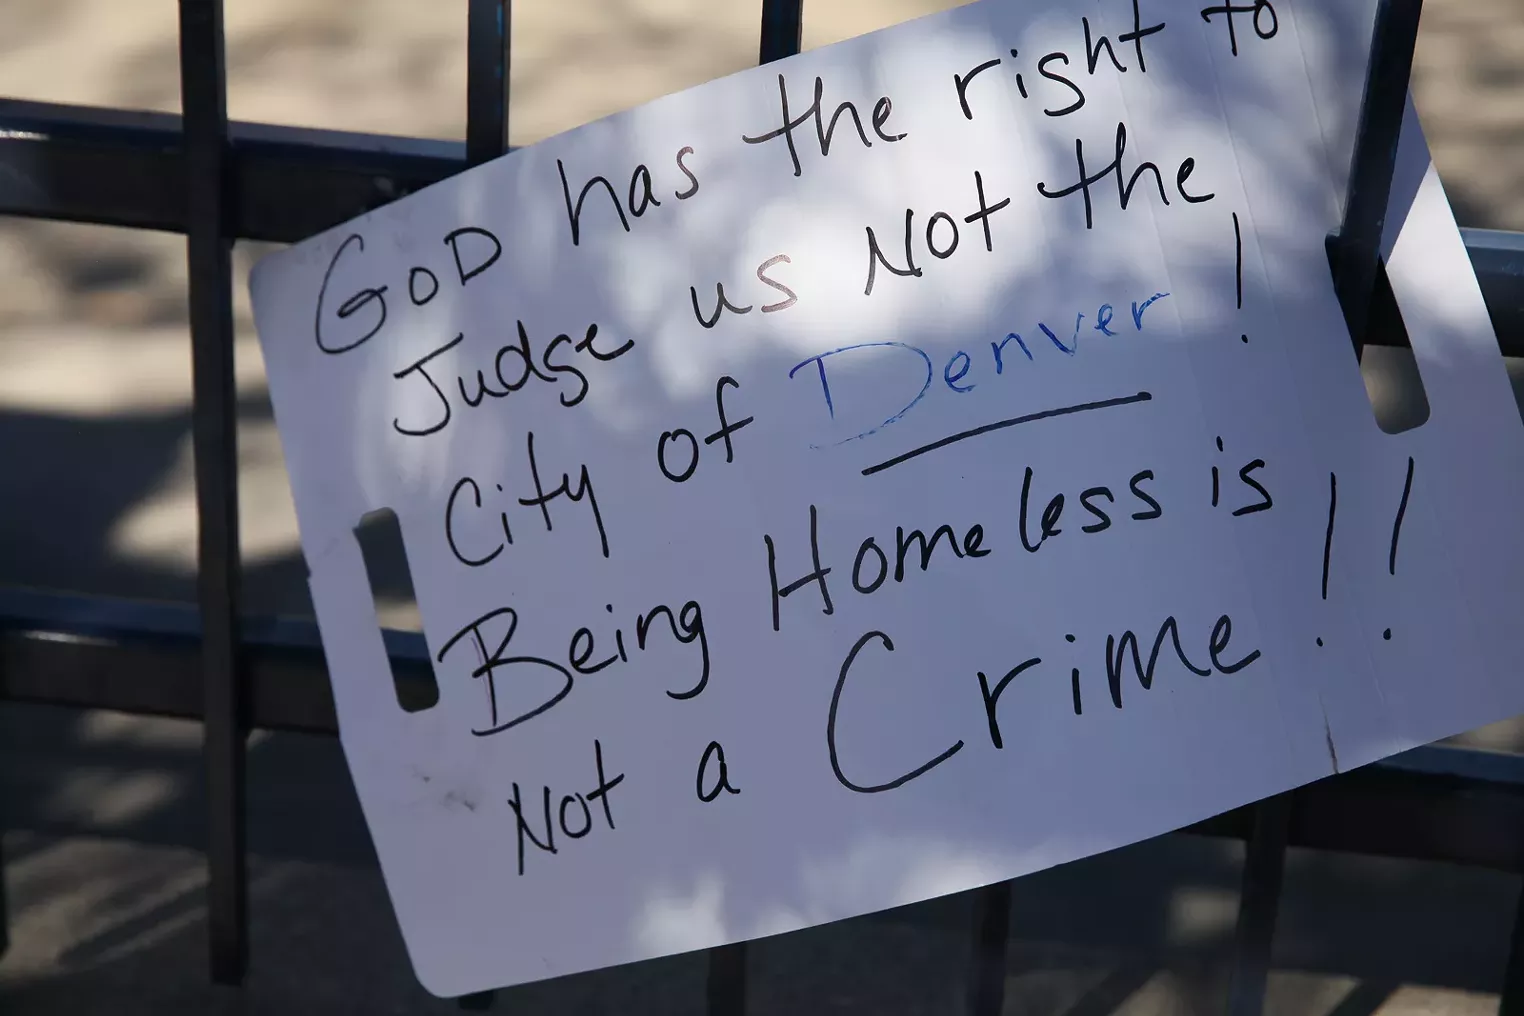 GOD has the right to
Judge us Not the
City of Denver!
Being Homeless is
Not a Crime!!